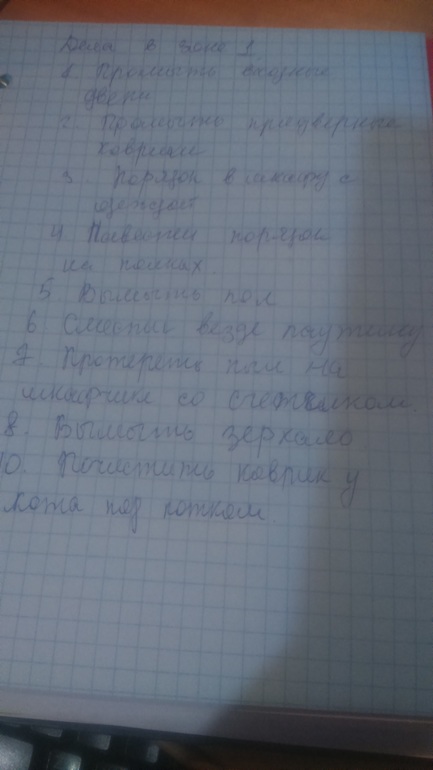 Дела в зоне 1
1. Промыть входные
двери
2. Промыть придверные
коврики
3. Порядок в шкафу с
одеждой
4 порядок
на полках.
5. Вымыть пол
6 Смести везде паутину
7. Протереть пыль на
шкафчике со счетчиком.
8. Вымыть зеркало
10. Почистить коврик у
кота под лотком.